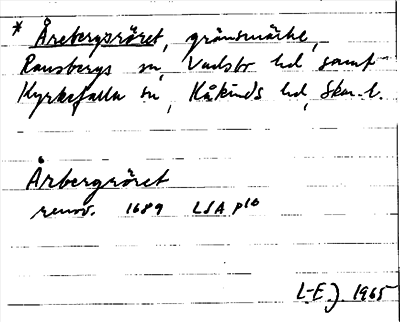 * Årebergsröret, gränsmärke,
Ransbergs sn, Vadsbo hd samt
Kyrkefalla sn, Kåkinds hd, Skar. l.
Årbergröret
renov. 1689 LSA p10
L-E. J. 1965